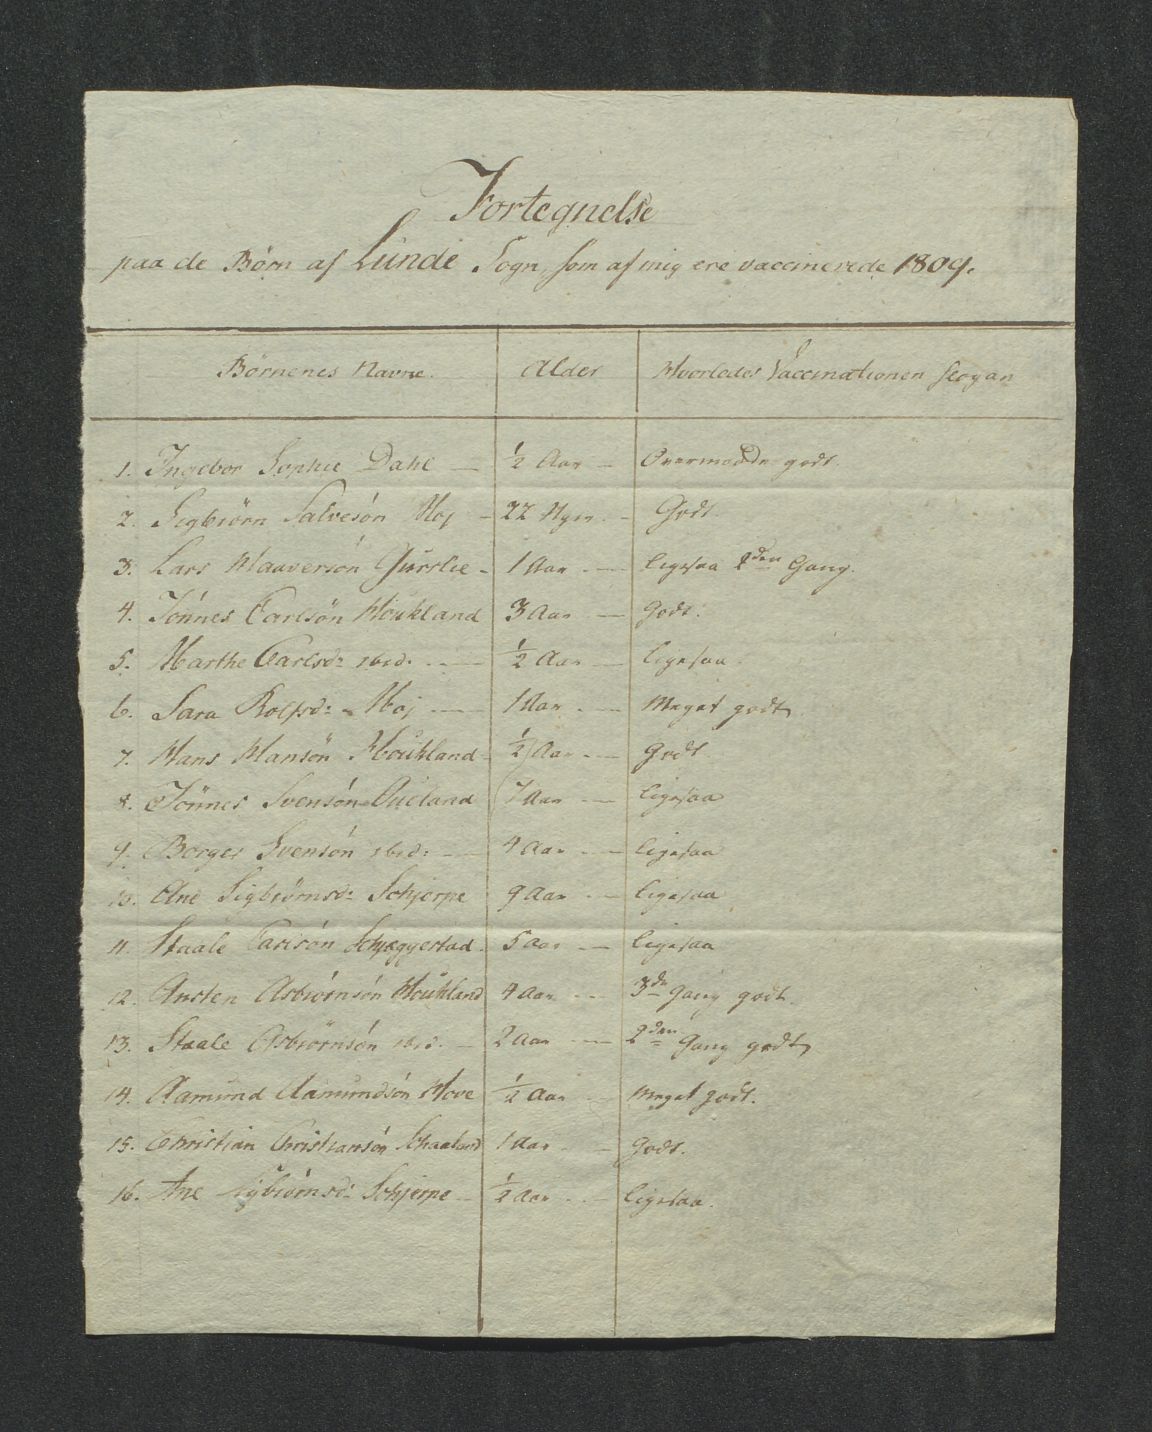 Fortegnelse
paa de Børn af Lunde Sogn, som af mig ere vaccinerede 1809.
Børnenes Navne. Alder Hvorledes Vaccinationen slog an
1. Ingebor Sophie Dahl — ½ Aar — Overmaade godt.
2. Sigbiörn Salvesön Moj — 22 Uger — Godt.
3. Lars Haaversön Gurslie — 1 Aar — ligesaa 2den Gang.
4. Tönnes Carlsön Houkland 3 Aar — Godt.
5. Marthe Carlsd: ibid. — ½ Aar — ligesaa.
6. Sara Rolfsd: Moj — 1 Aar — Meget godt
7. Hans Hansön Houkland ½ Aar — Godt
8. Tönnes Svensön Aueland 7 Aar — ligesaa
9. Borger Svensön ibid: — 4 Aar — ligesaa
10. Ane Sigbiörnsd: Schjerpe 9 Aar — ligesaa
11. Staale Carlsön Schjeggestad 5 Aar — ligesaa
12. Austen Asbiörnsön Houkland 4 Aar — 3de Gang godt.
13. Staale Asbiörnsön ibid. — 2 Aar — 2den Gang godt
14. Aamund Aamundsön Hove ½ Aar — Meget godt.
15. Christian Christiansön Schaaland 1 Aar — Godt.
16. Ane Sigbiörnsd: Schjerpe — ½ Aar — ligesaa.